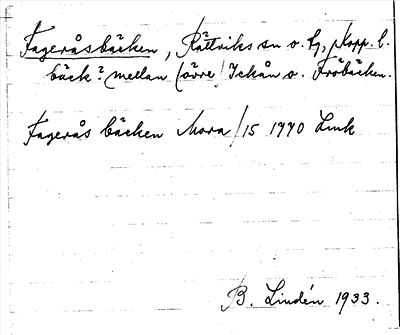 Fageråsbäcken, Rättviks sn o. tg, Kopp. l.
bäck? mellan (övre) Ickån o. Fröbäcken.
Fagerås bäcken Mora /15 1770 Link
B. Lindén 1933.